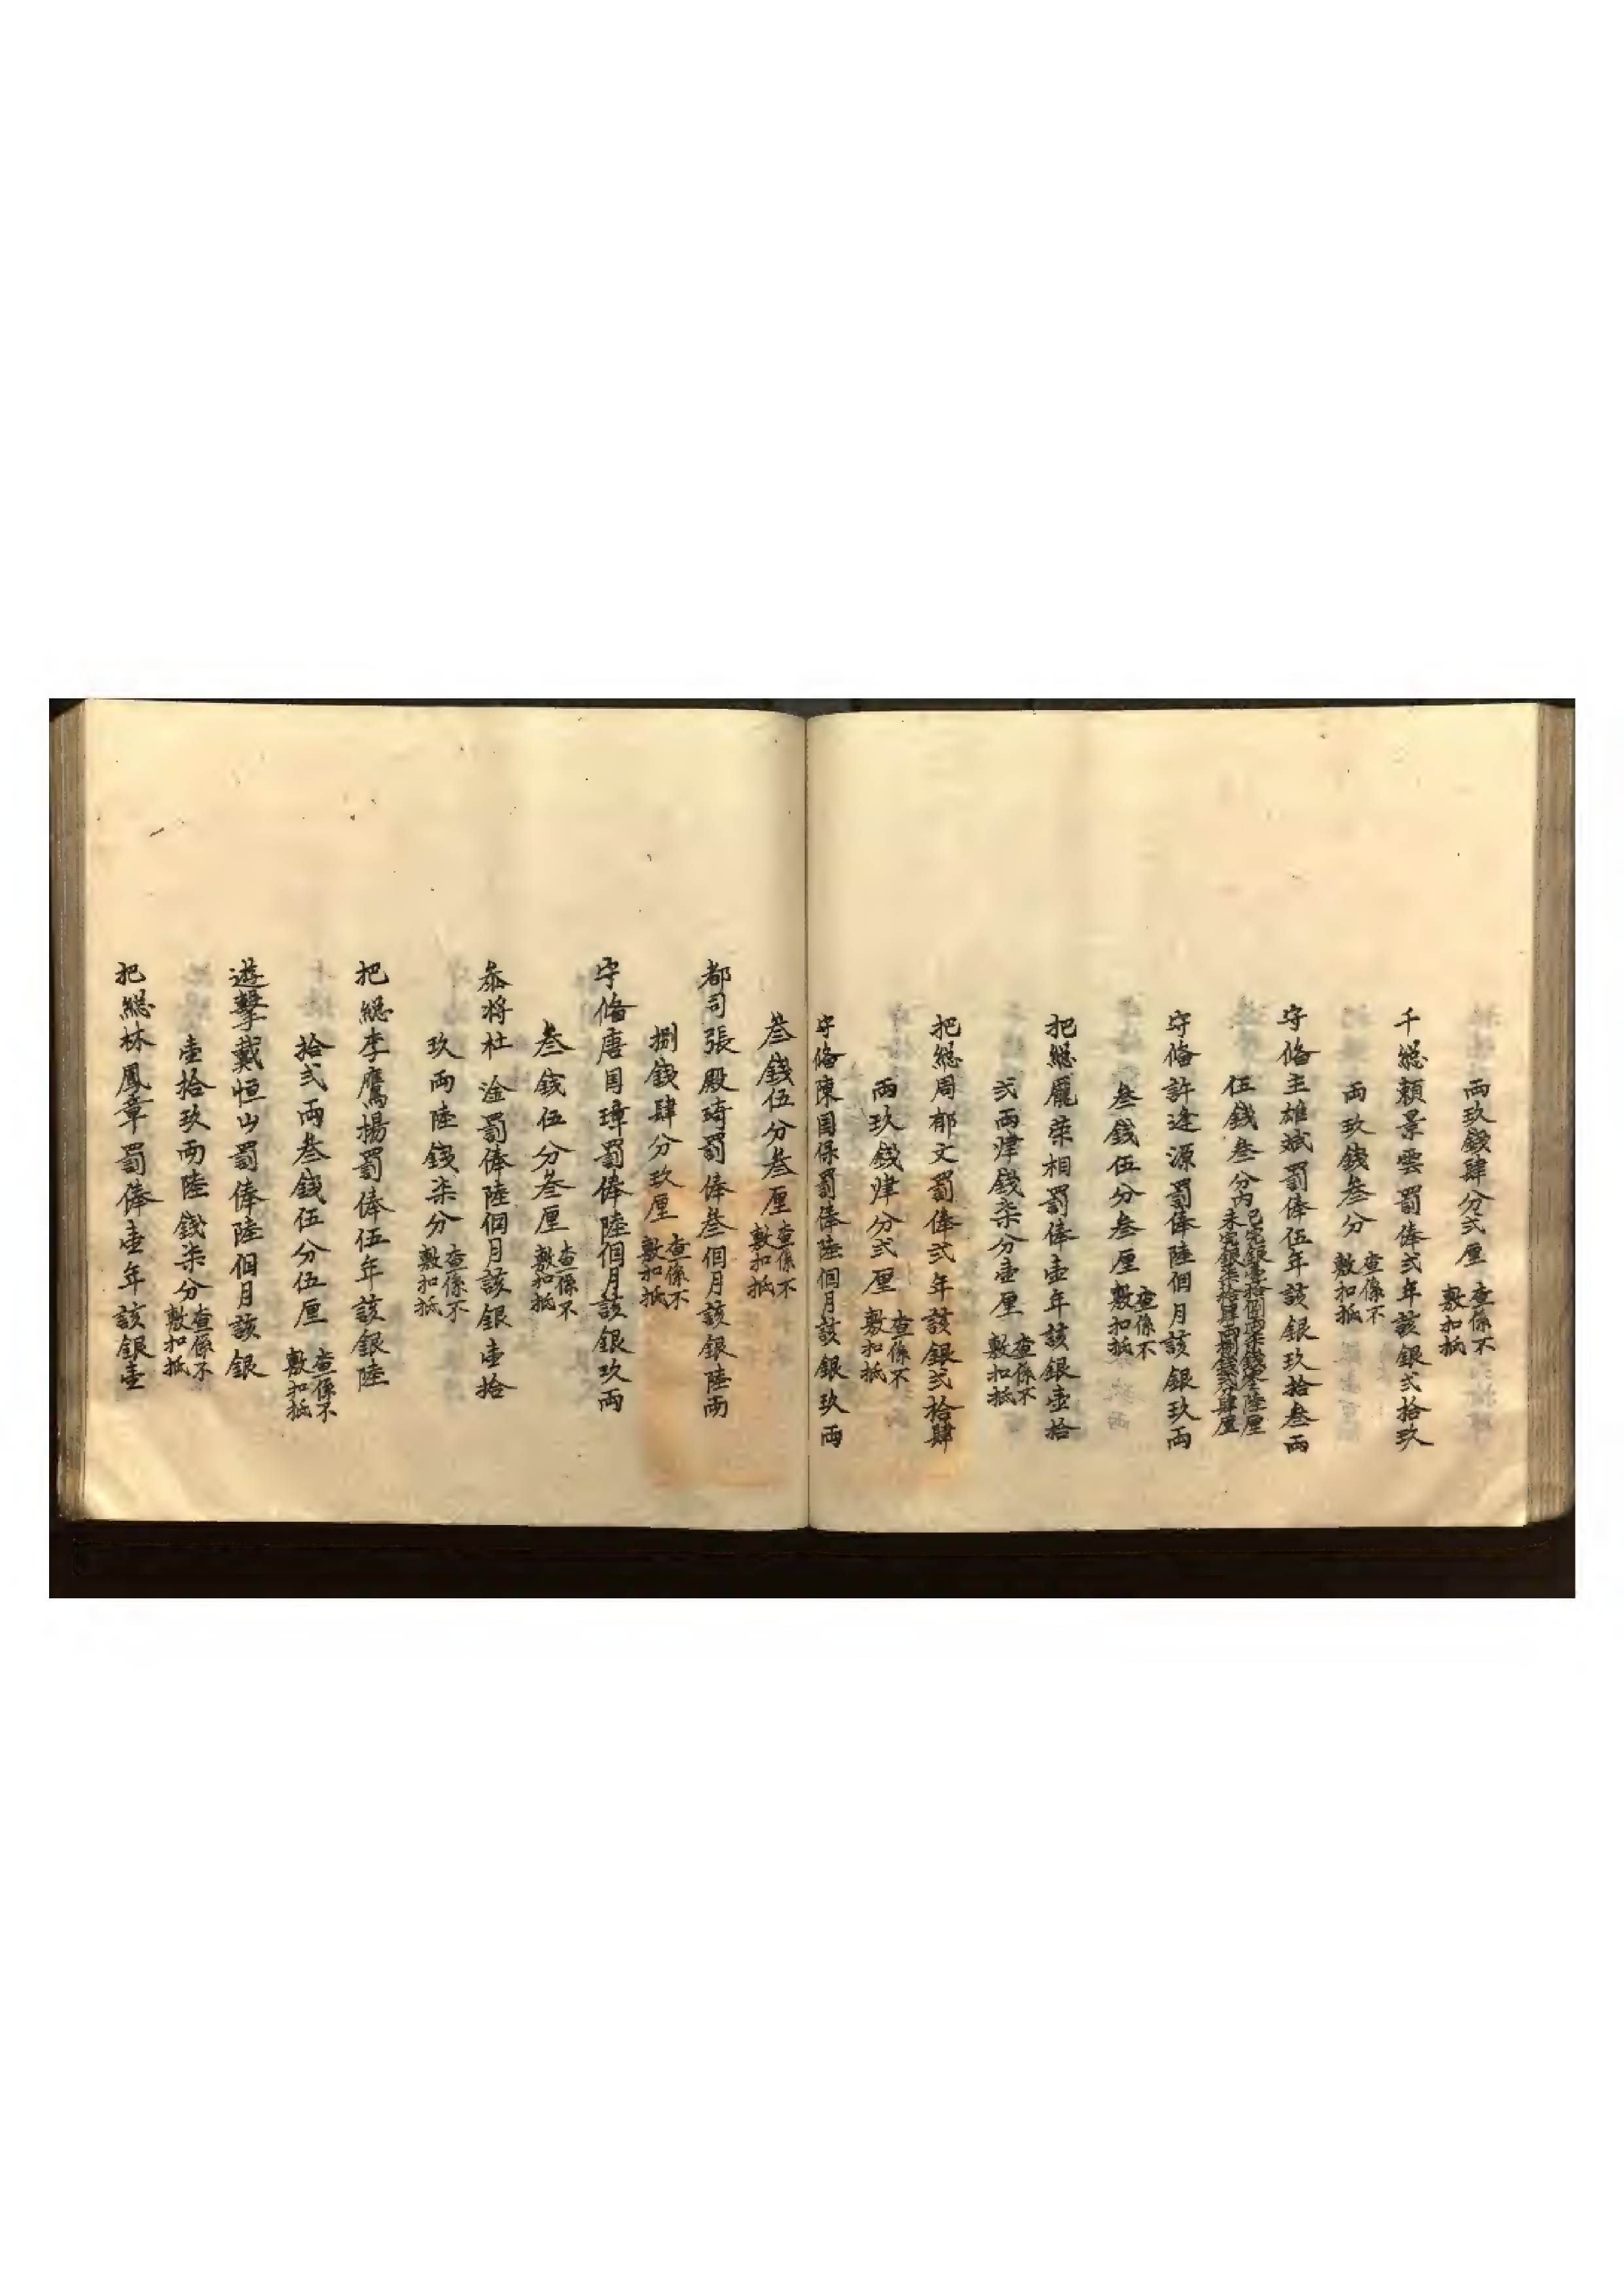 兩玖錢肆分弍厘查係不敷扣抵
千總賴景雲罰俸弍年該銀弍拾玖
兩玖錢叁分查係不敷扣抵
守俻王雄斌罰俸伍年該銀玖拾叁兩
伍錢叁分内已完銀壹拾捌兩柒錢零陸厘未完銀柒拾肆兩捌錢弍分肆厘
守俻許逢源罰俸陸個月該銀玖兩
叁錢伍分叁厘查係不敷扣抵
把總龐荣相罰俸壹年該銀壹拾
弍兩肆錢柒分壹厘查係不敷扣抵
把總周郁文罰俸弍年該銀弍拾肆
兩玖錢肆分弍厘查係不敷扣抵
守俻陳国保罰俸陸個月該銀玖兩
叁錢伍分叁厘查係不敷扣抵
都司張殿琦罰俸叁個月該銀陸兩
捌錢肆分玖厘查係不敷扣抵
守俻唐国璋罰俸陸個月該銀玖兩
叁錢伍分叁厘查係不敷扣抵
叅将杜淦罰俸陸個月該銀壹拾
玖兩陸錢柒分查係不敷扣抵
把總李鷹揚罰俸伍年該銀陸
拾弍兩叁錢伍分伍厘查係不敷扣抵
遊擊戴恒山罰俸陸個月該銀
壹拾玖兩陸錢柒分查係不敷扣抵
把總林鳳章罰俸壹年該銀壹